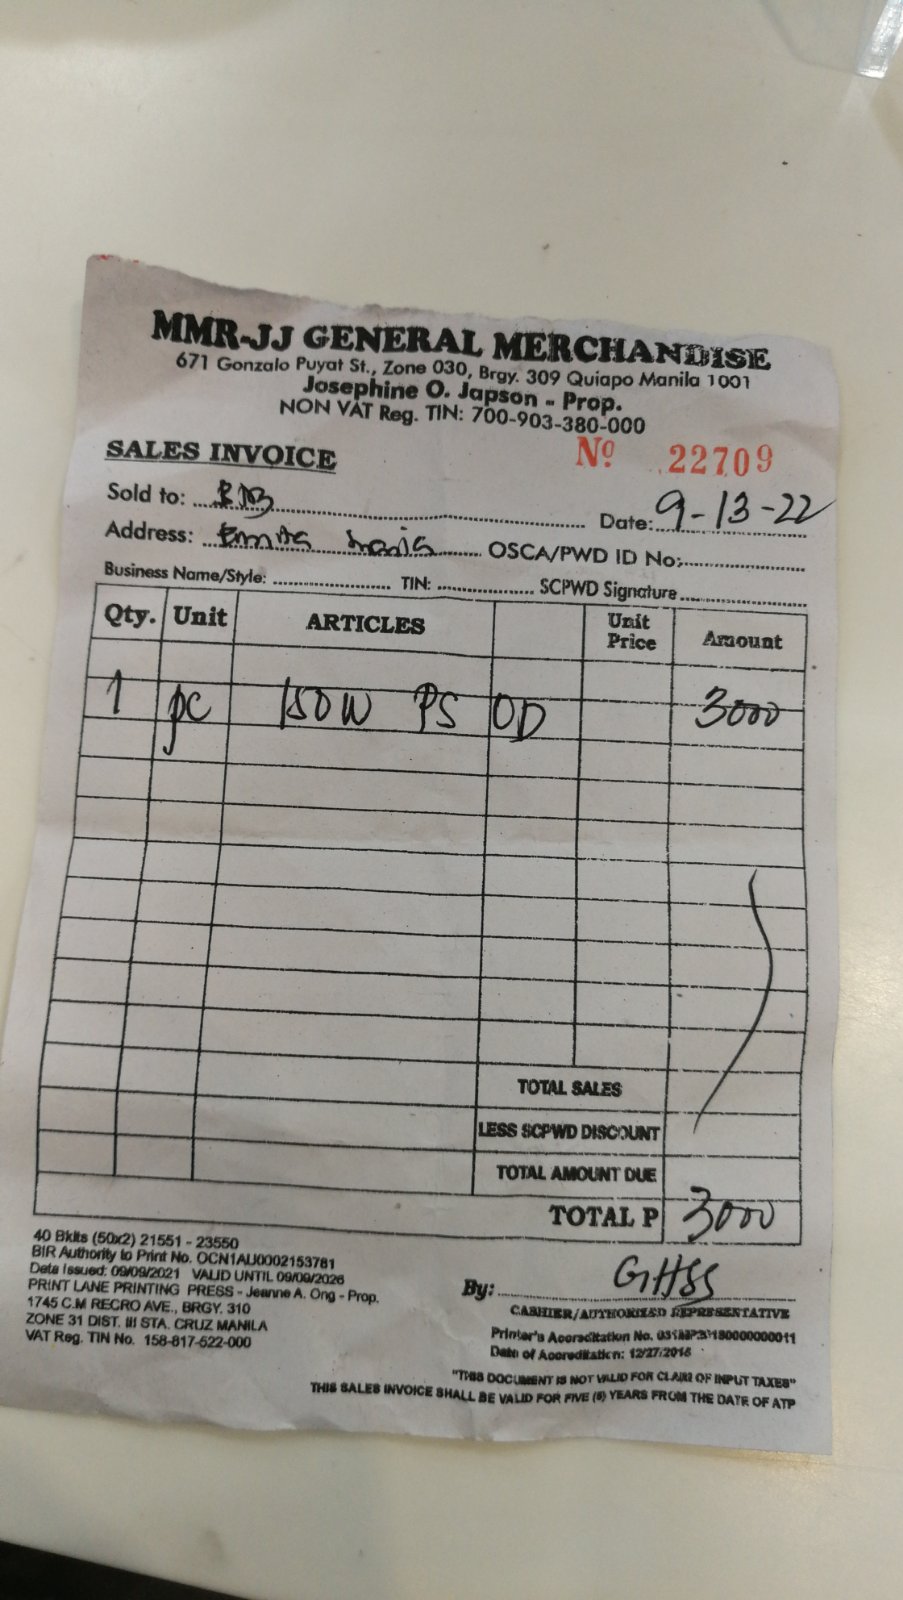 MMR-JJ GENERAL MERCHANDISE
671 Gonzalo Puyat St., Zone 030, Brgy. 309 Quiapo Manila 1001
Josephine O. Japson - Prop.
NON VAT Reg. TIN: 700-903-380-000
SALES INVOICE Nº 22709
Sold to: Date: 9-13-22
Address: OSCA/PWD ID No:
Business Name/Style: TIN: SCPWD Signature
Qty. Unit ARTICLES Unit Price Amount
1 pc 150W PS OD 3000
TOTAL SALES
LESS SCPWD DISCOUNT
TOTAL AMOUNT DUE
TOTAL P 3000
40 Bklts (50x2) 21551 - 23550
BIR Authority to Print No. OCN1AU0002153781
Date Issued: 09/09/2021 VALID UNTIL 09/09/2026
PRINT LANE PRINTING PRESS - Jeanne A. Ong - Prop.
1745 C.M RECRO AVE., BRGY. 310
ZONE 31 DIST. III STA. CRUZ MANILA
VAT Reg. TIN No. 158-817-522-000
By:
CASHIER/AUTHORIZED REPRESENTATIVE
Printer's Accreditation No.
Date of Accreditation:
"THIS DOCUMENT IS NOT VALID FOR CLAIM OF INPUT TAXES"
THIS SALES INVOICE SHALL BE VALID FOR FIVE (5) YEARS FROM THE DATE OF ATP